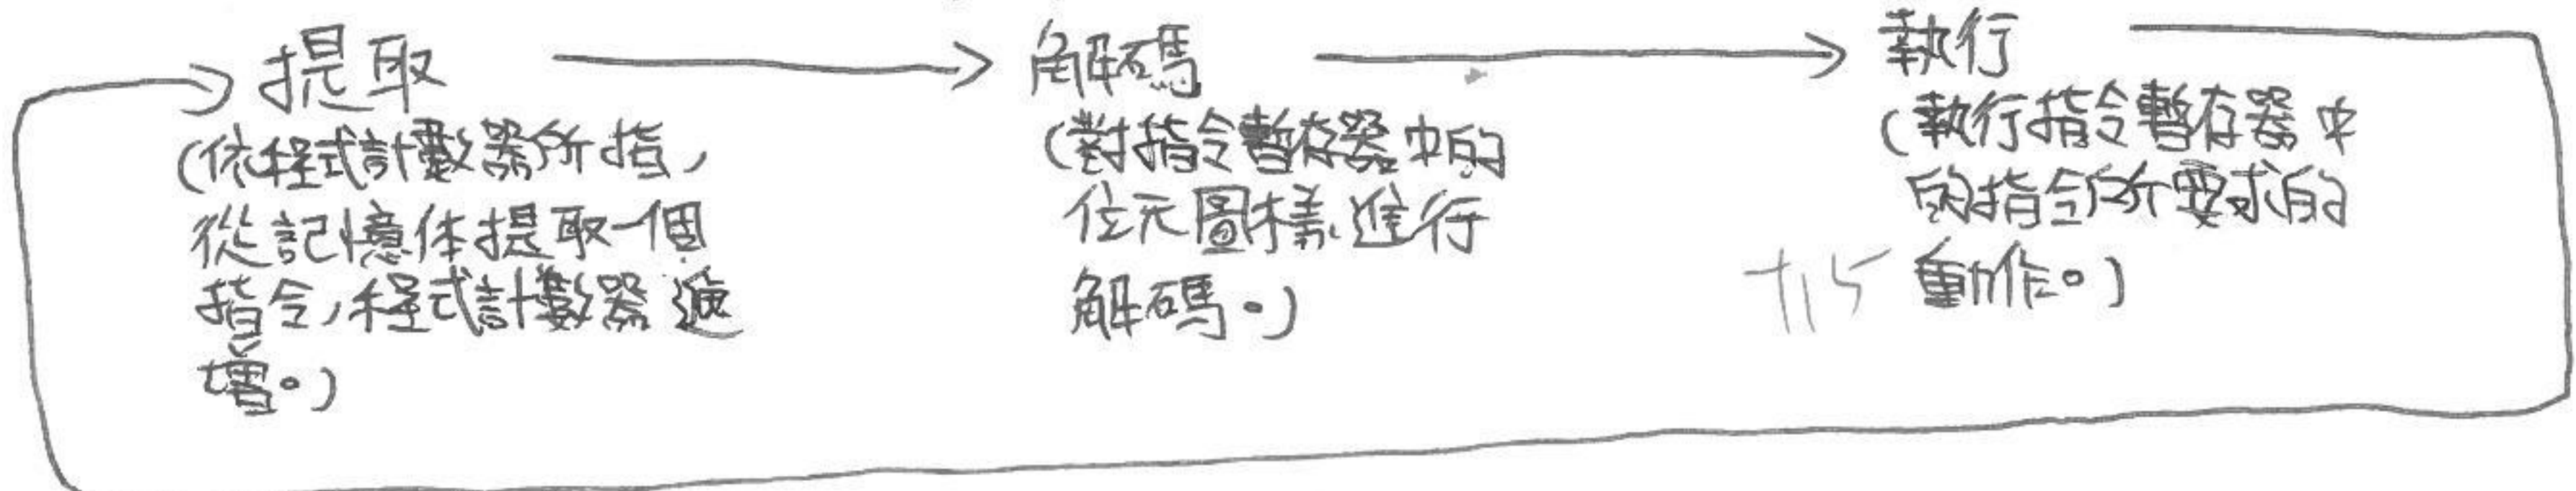 提取
(依程式計數器所指,
從記憶体提取一個
指令,程式計數器遞
增。)
解碼
(對指令暫存器中的
位元圖樣進行
解碼。)
執行
(執行指令暫存器中
的指令所要求的
動作。)
+15